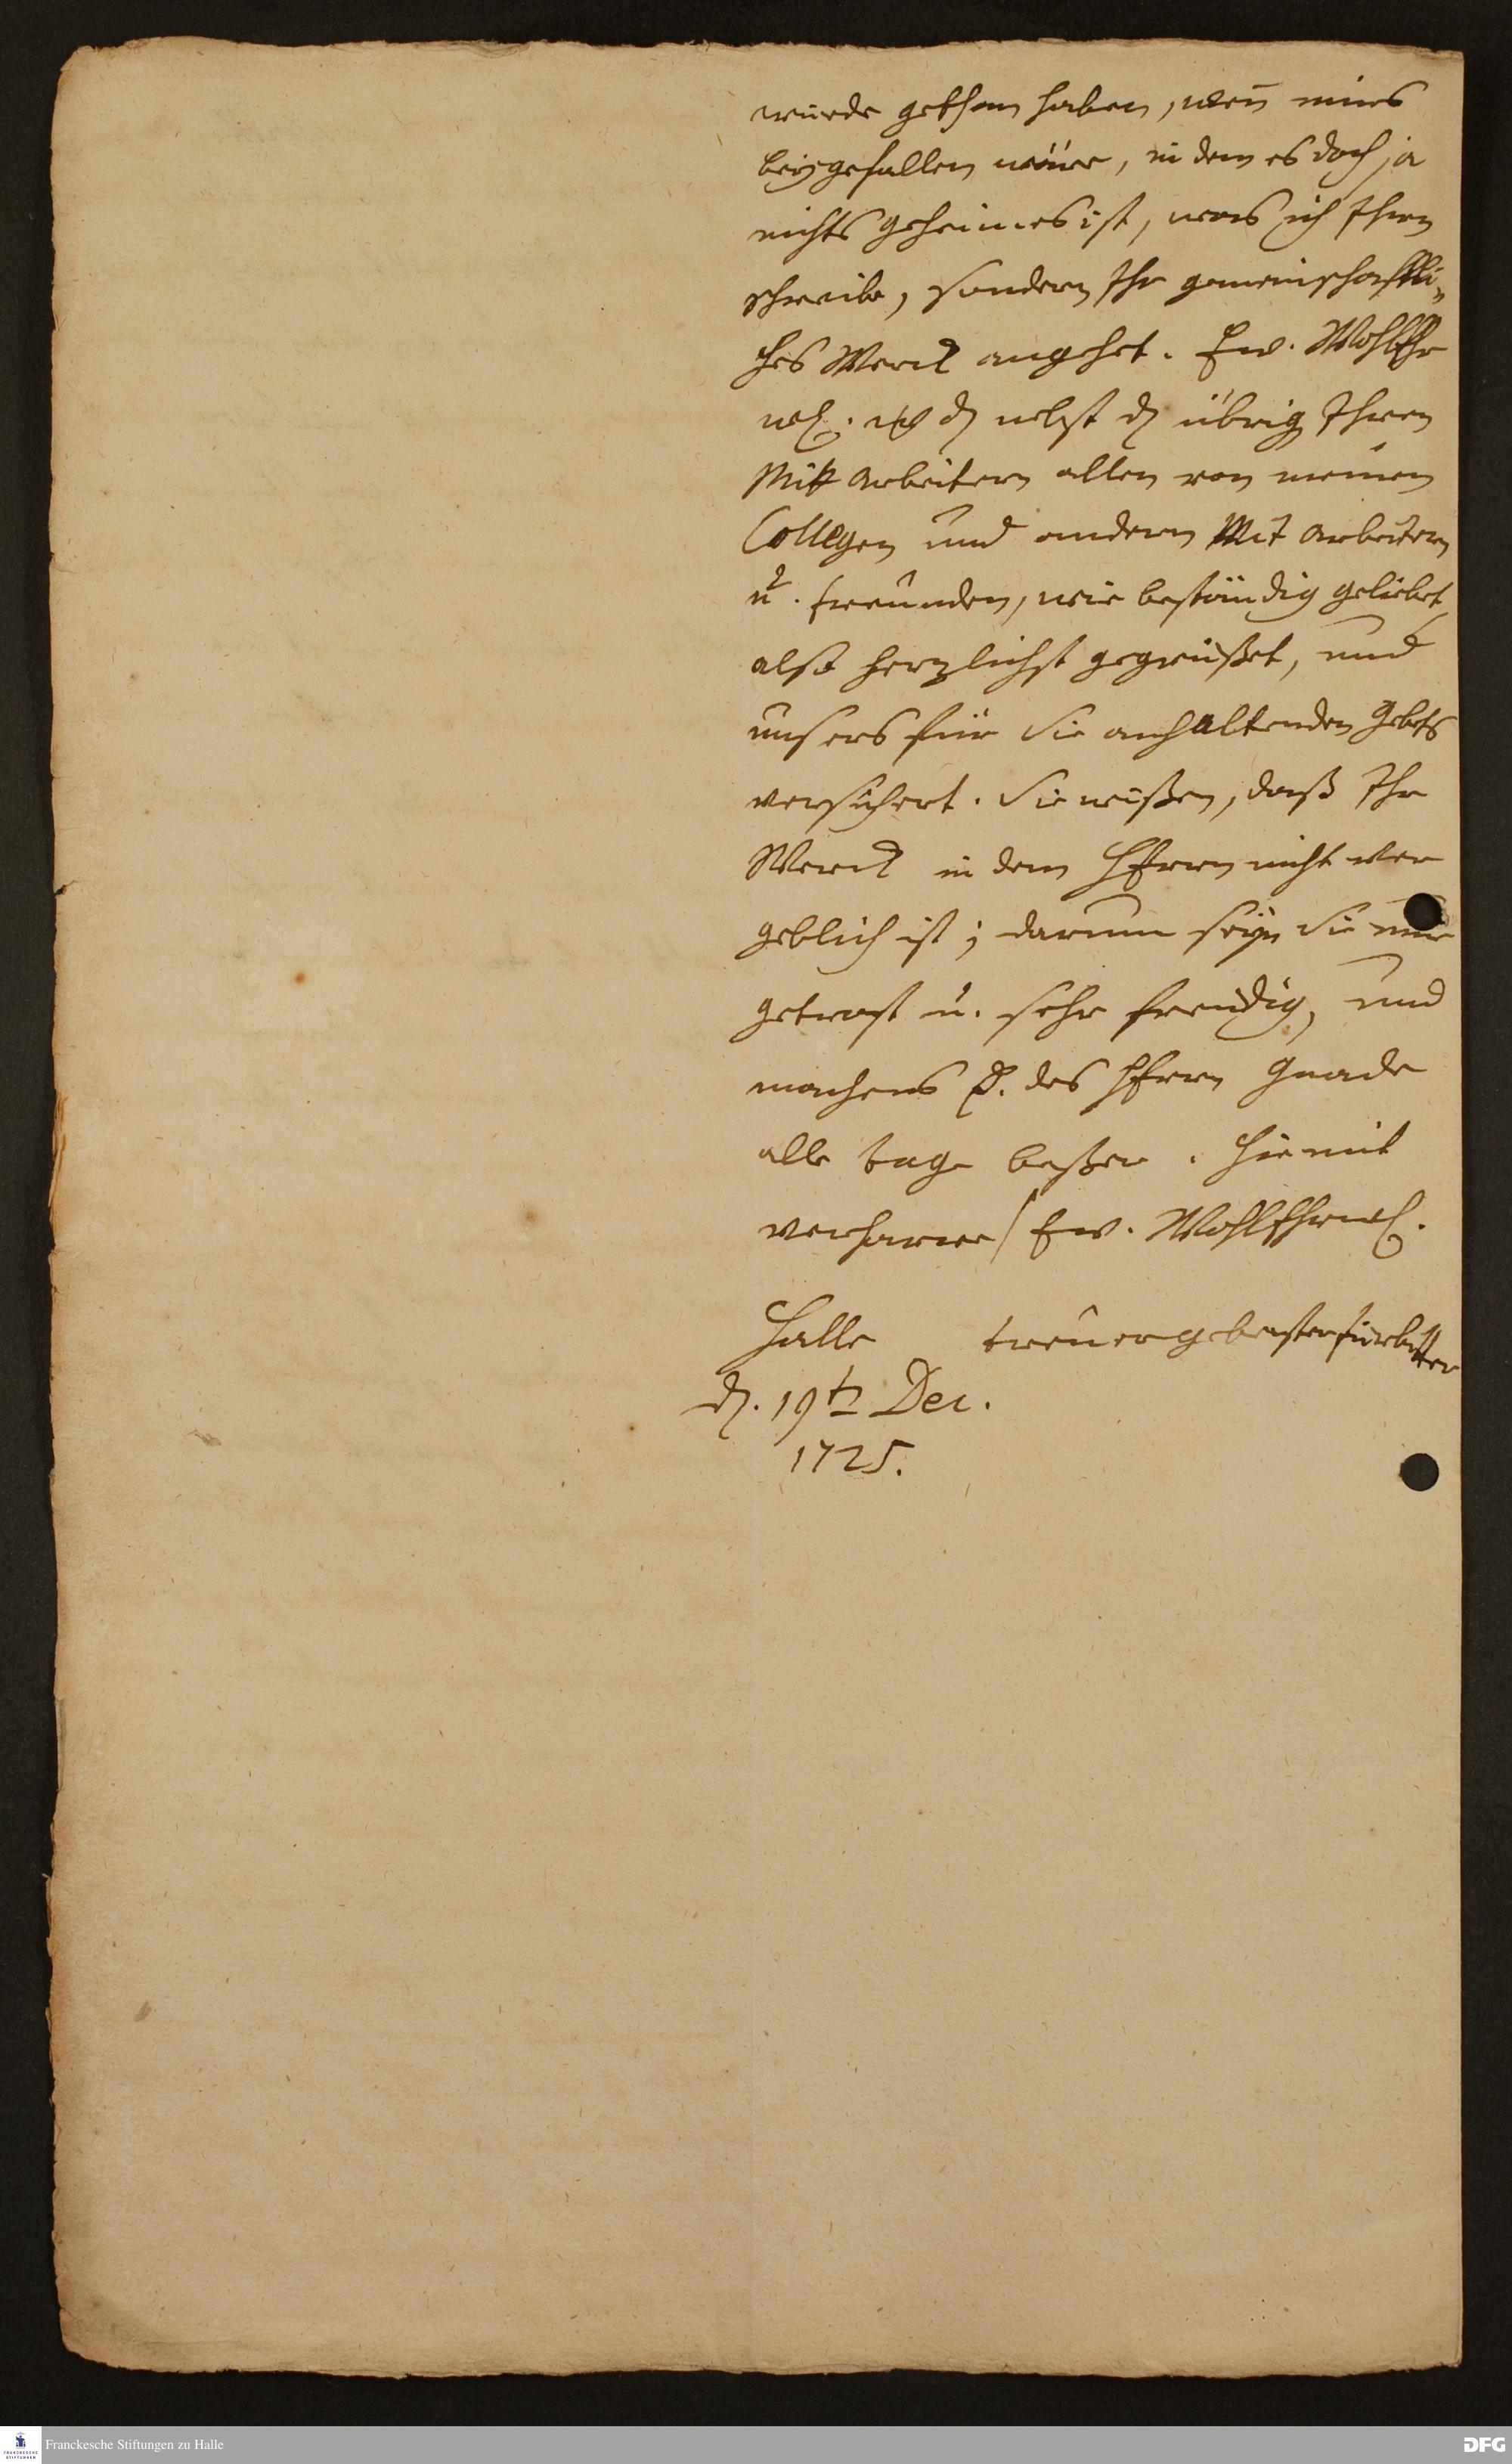 würde gethan haben, wen mirs
beygefallen wäre, in dem es doch ja
nichts geheimes ist, was ich Ihnen
schreibe, sondern Ihr gemeinschafftli„
ches Werck angehet. Ew. WohlEhr
nebst d übrig Ihren
Mit Arbeitern allen von meinen
Collegen und andern Mit Arbeitern
u. Freunden, wie beständig geliebet,
also herzlichst gegrüßet, und
unsers für Sie anhaltenden Gebets
versichert. Sie wißen, daß Ihr
Werck in dem HErrn nicht ver
geblich ist; darum seyn Sie nur
getrost u. sehr freudig, und
machens d. des HErrn Gnade
alle tage beßer. Hiemit
verharre / Ew. WohlEhrw.
Halle treuergebenster fürbitter
d. 19ten Dec.
1725.
Franckesche Stiftungen zu Halle
DFG